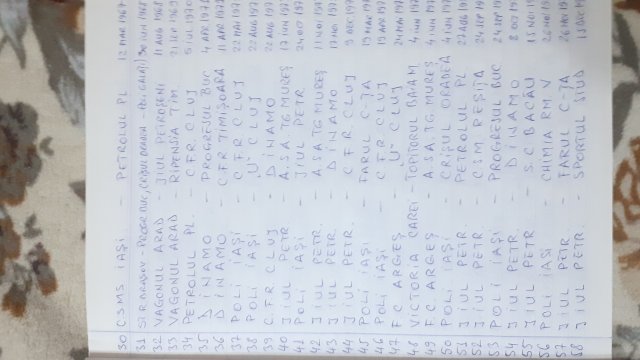 30 C.S.M.S. IAȘI - PETROLUL PL. 12 MAR 1967
31 STR. BRAȘOV - PROGR. BUC, CRIȘUL ORADEA - POL. GALAȚI 30 IUN 1968
32 VAGONUL ARAD - JIUL PETROȘENI 11 AUG 1968
33 VAGONUL ARAD - RIPENSIA TIM. 21 SEP 1969
34 PETROLUL PL. - C.F.R. CLUJ 5 IUL 1970
35 DINAMO - PROGRESUL BUC 4 APR 1971
36 DINAMO - C.F.R. TIMIȘOARA 11 APR 1971
37 POLI IAȘI - C.F.R. CLUJ 22 MAI 1971
38 POLI IAȘI - „U" CLUJ 22 AUG 1971
39 C.F.R. CLUJ - DINAMO 22 AUG
40 JIUL PETR. - A.S.A. TG. MUREȘ 17 IUN 197
41 POLI IAȘI - JIUL PETR. 24 OCT 197
42 JIUL PETR. - ASA TG. MUREȘ 11 197
43 JIUL PETR. - DINAMO 17 NOI 197
44 JIUL PETR. - C.F.R. CLUJ 9 DEC 197
45 POLI IAȘI - FARUL C-ȚA 19 MAR 197
46 POLI IAȘI - C.F.R. CLUJ 19 APR 197
47 F.C. ARGEȘ - „U" CLUJ 24 MAI 197
48 VICTORIA CAREI - TOPITORUL B. MAM. 4 IUN 197
49 F.C. ARGEȘ - ASA TG. MUREȘ 4 IUN 197
50 POLI IAȘI - CRIȘUL ORADEA 4 IUN 197
51 JIUL PETR. - PETROLUL PL. 27 AUG 197
52 JIUL PETR. - C.S.M. REȘIȚA 24 SEP 197
53 POLI IAȘI - PROGRESUL BUC 24 SEP 197
54 JIUL PETR. - DINAMO 8 OCT 197
55 JIUL PETR. - S.C. BACĂU 15 NOI 19
56 POLI IAȘI - CHIMIA RM V 26 NOI 19
57 JIUL PETR. - FARUL C-ȚA 26 19
58 JIUL PETR. - SPORTUL STUD